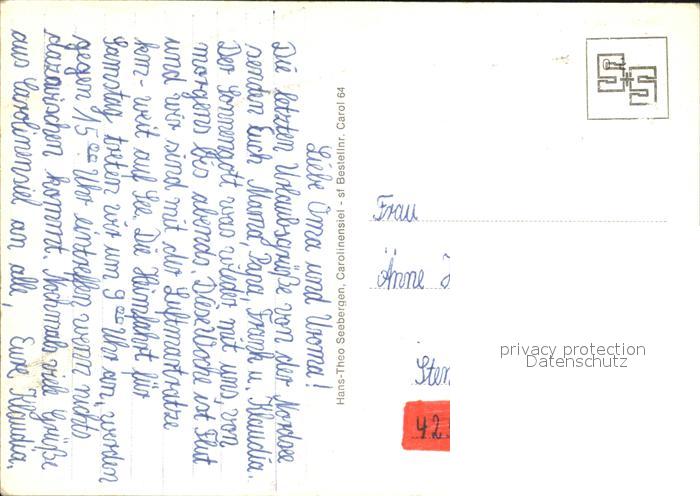 Liebe Oma und Uroma!
Die letzten Urlaubsgrüße von der Nordsee
senden Euch Mama, Papa, Frank u. Klaudia.
Der Sonnengott war wieder mit uns, von
morgens bis abends. Diese Woche ist Flut
und wir sind mit der Luftmatratze
km-weit auf See. Die Heimfahrt für
Samstag treten wir um 9 00 Uhr an, werden
gegen 15 00 Uhr eintreffen wenn nichts
dazwischen kommt. Nochmals viele Grüße
aus Carolinensiel an alle, Eure Klaudia.
Hans-Theo Seebergen, Carolinensiel - sf Bestellnr. Carol 64
Frau
Änne
Sten
42
privacy protection
Datenschutz